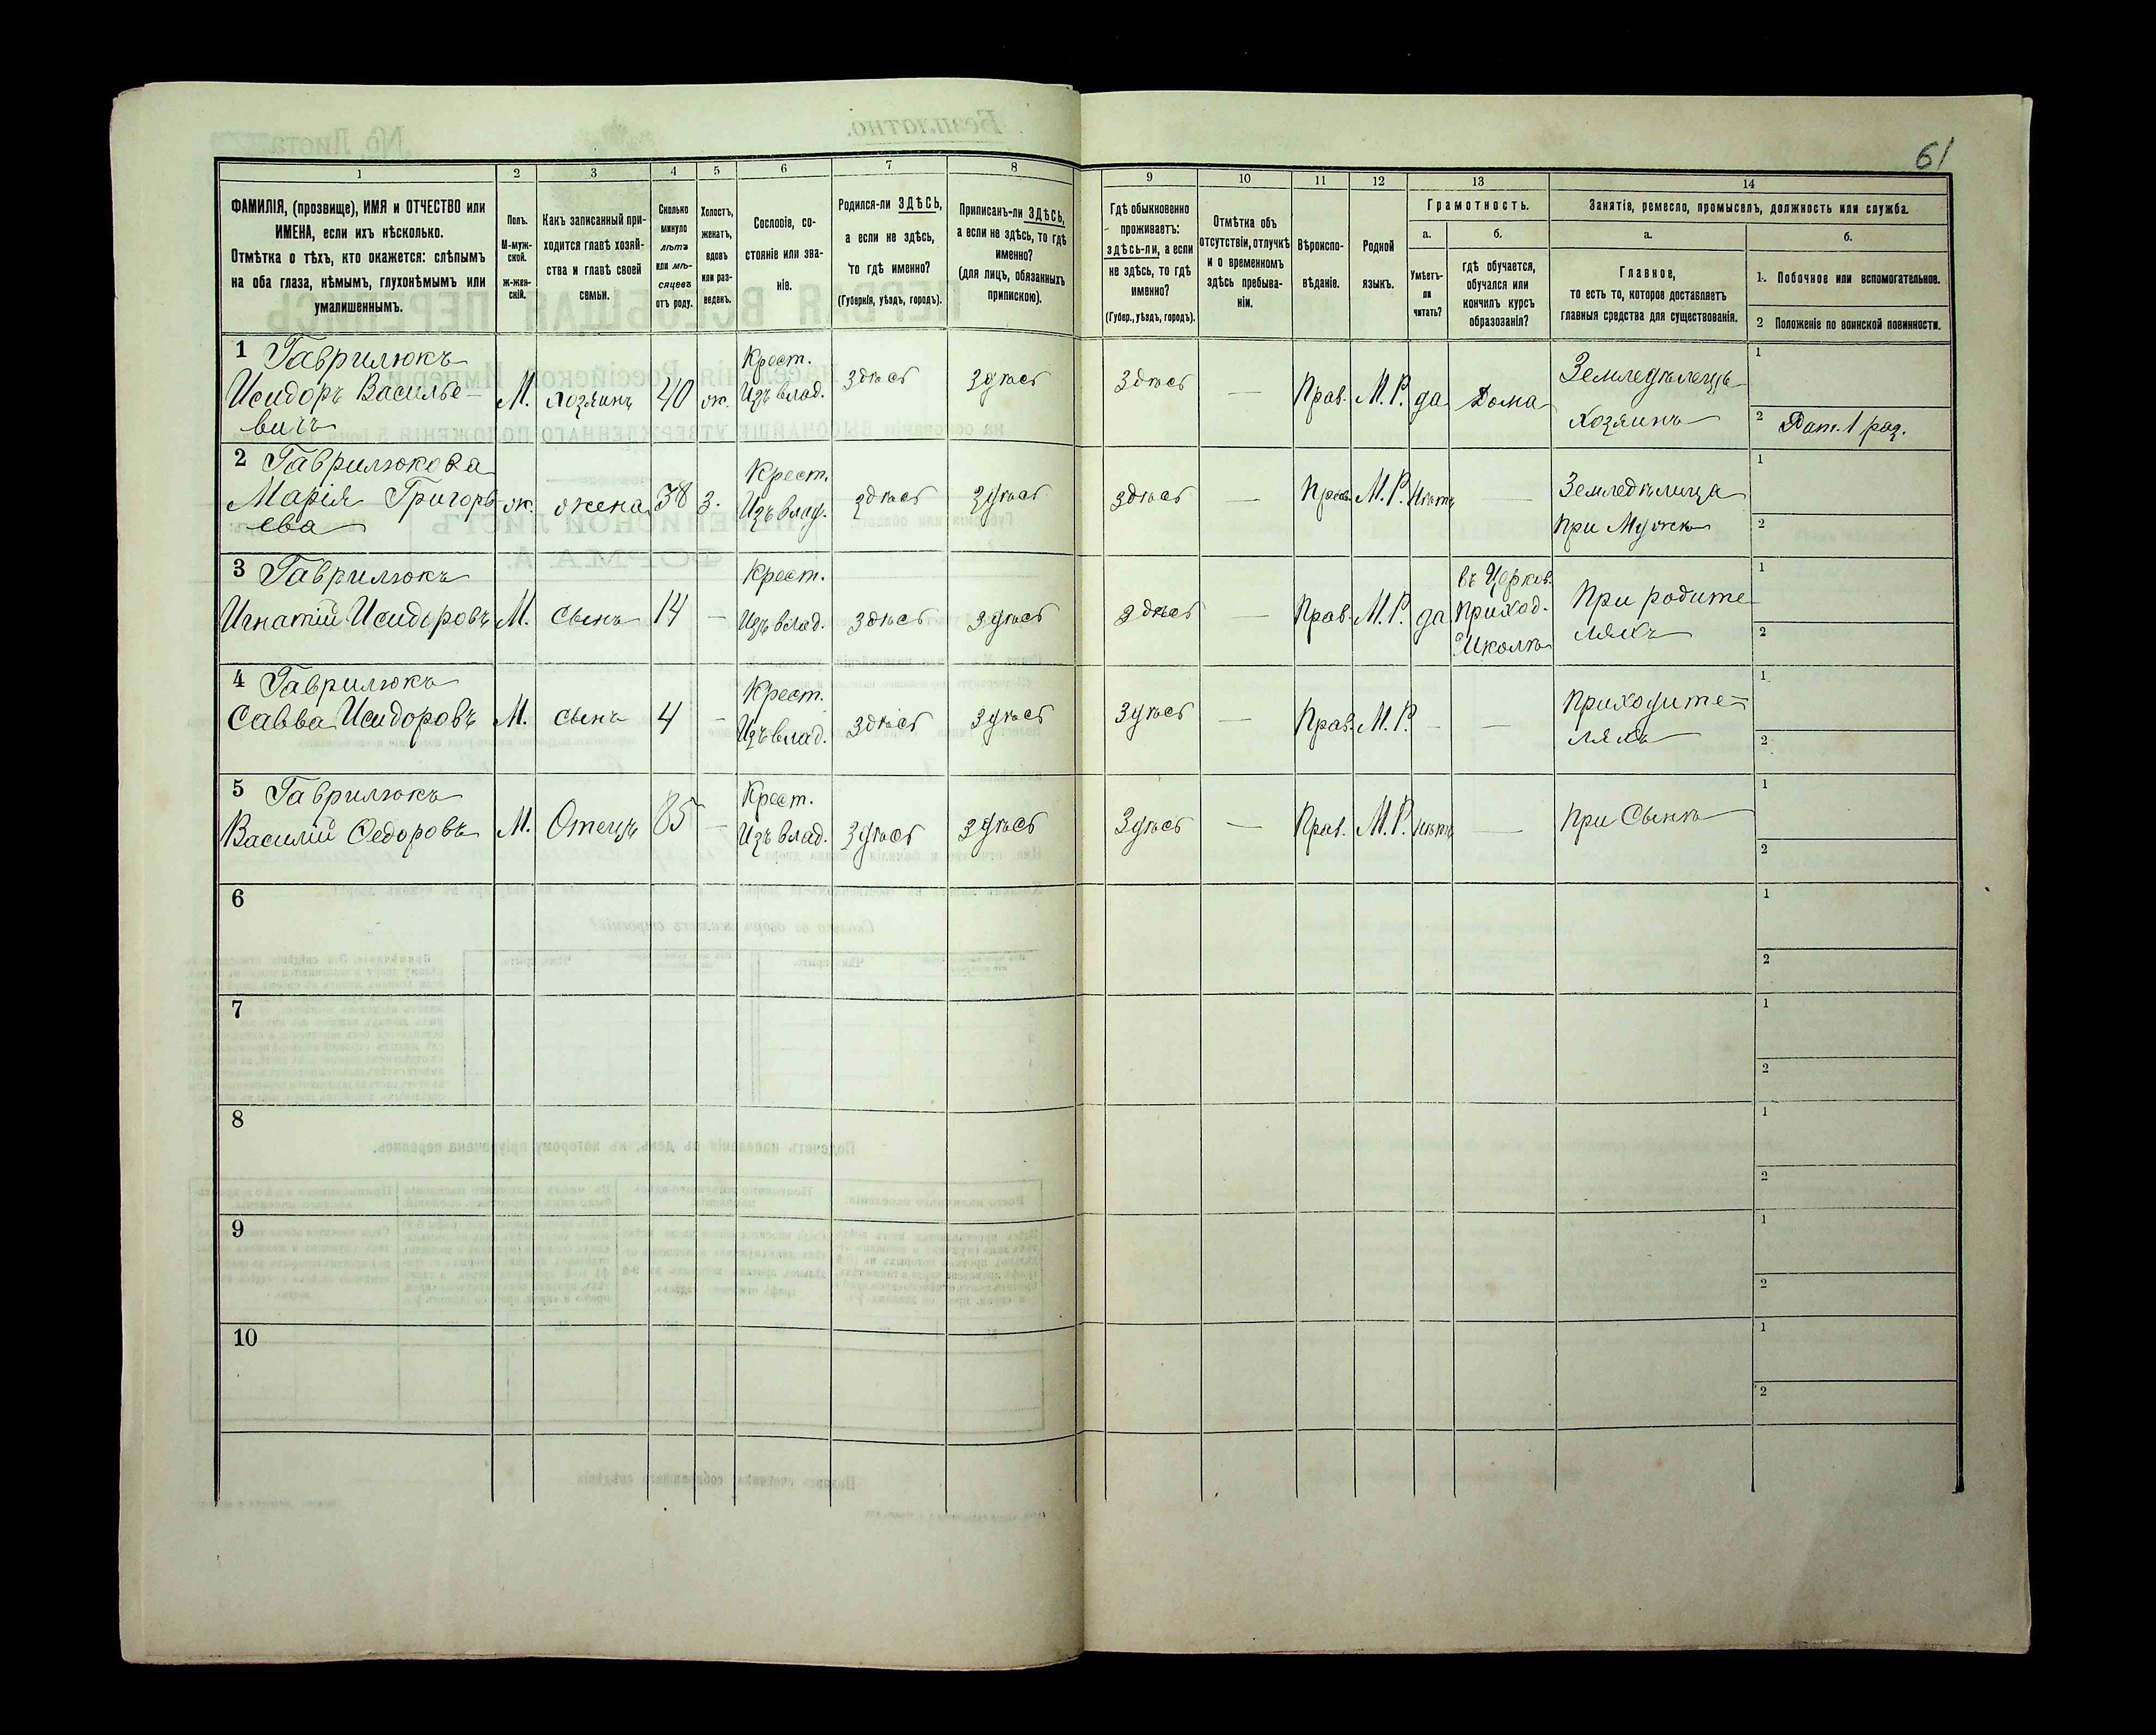 61
1 2 3 4 5 6 7 8 9 10 11 12 13 14
ФАМИЛІЯ, (прозвище), ИМЯ и ОТЧЕСТВО или
ИМЕНА, если ихъ нѣсколько.
Отмѣтка о тѣхъ, кто окажется: слѣпымъ
на оба глаза, нѣмымъ, глухонѣмымъ или
умалишеннымъ.
Полъ.
М-муж-
ской.
ж-жен-
скій.
Какъ записанный при-
ходится главѣ хозяй-
ства и главѣ своей
семьи.
Сколько
минуло
лѣтъ
или мѣ-
сяцевъ
отъ роду.
Холостъ,
женатъ,
вдовъ
или раз-
веденъ.
Сословіе, со-
стояніе или зва-
ніе.
Родился-ли ЗДѢСЬ,
а если не здѣсь,
то гдѣ именно?
(Губернія, уѣздъ, городъ).
Приписанъ-ли ЗДѢСЬ,
а если не здѣсь, то гдѣ
именно?
(для лицъ, обязанныхъ
припискою).
Гдѣ обыкновенно
проживаетъ:
здѣсь-ли, а если
не здѣсь, то гдѣ
именно?
(Губер., уѣздъ, городъ).
Отмѣтка объ
отсутствіи, отлучкѣ
и о временномъ
здѣсь пребыва-
ніи.
Вѣроиспо-
вѣданіе.
Родной
языкъ.
Грамотность.
а.
Умѣетъ-
ли
читать?
б.
гдѣ обучается,
обучался или
кончилъ курсъ
образованія?
Занятіе, ремесло, промыселъ, должность или служба.
а.
Главное,
то есть то, которое доставляетъ
главныя средства для существованія.
б.
1. Побочное или вспомогательное.
2 Положеніе по воинской повинности.
1 Гаврилюкъ
Исидоръ Василье-
вичъ
М.
хозяинъ
40
ж.
Крест.
Изъ влад.
Здѣсь
Здѣсь
Здѣсь
—
Прав.
М. Р.
да
Дома
Земледѣлецъ
Хозяинъ
1
2 Рат. 1 раз.
2 Гаврилюкова
Марія Григорь
ева
ж.
жена
38
З.
Крест.
Изъ влад.
здѣсь
здѣсь
здѣсь
—
Прав.
М. Р.
Нѣтъ
—
Земледѣлица
при Мужѣ
1
2
3 Гаврилюкъ
Игнатій Исидоровъ
М.
Сынъ
14
—
Крест.
Изъ влад.
Здѣсь
Здѣсь
Здѣсь
—
Прав.
М. Р.
да
въ Церков.
приход.
Школѣ
При родите
ляхъ
1
2
4 Гаврилюкъ
Савва Исидоровъ
М.
Сынъ
4
—
Крест.
Изъ влад.
Здѣсь
Здѣсь
Здѣсь
—
Прав.
М. Р.
—
—
При родите=
ляхъ
1
2
5 Гаврилюкъ
Василій Ѳедоровъ
М.
Отецъ
85
—
Крест.
Изъ влад.
Здѣсь
Здѣсь
Здѣсь
—
Прав.
М. Р.
Нѣтъ
—
При Сынѣ
1
2
6
1
2
7
1
2
8
1
2
9
1
2
10
1
2